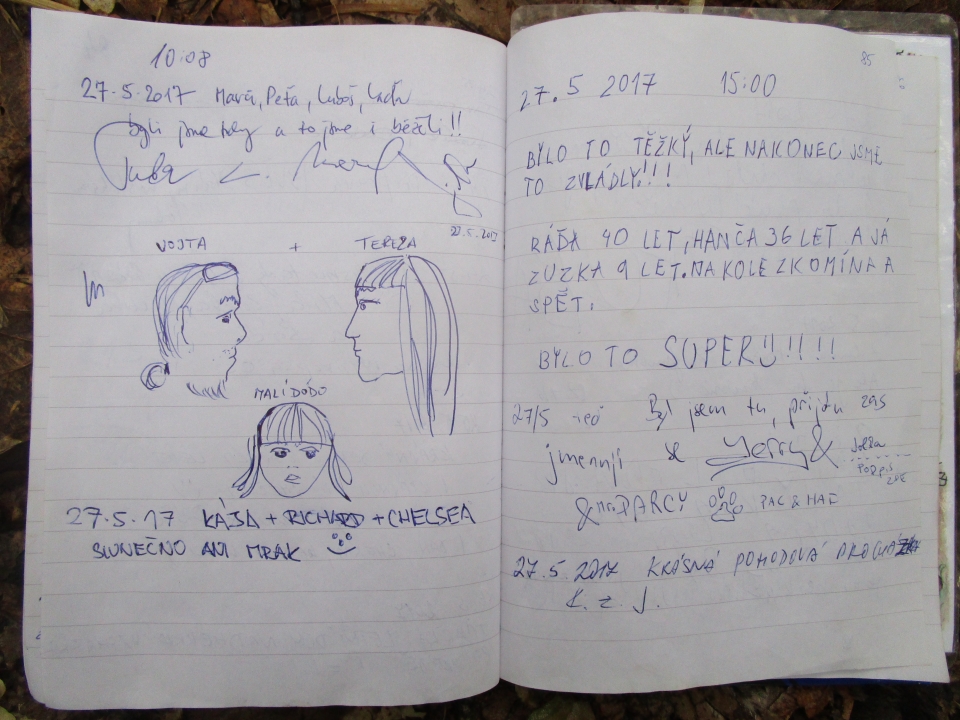 10:08
27.5.2017 Mara, Peťa, Luboš, 
byli jsme tady a to jsme i běželi!!
27.5.2017
VOJTA + TEREZA
MALÍ DÓDO
27.5.17 KÁJA + RICHARD + CHELSEA
SLUNEČNO ANI MRAK
85
27.5 2017 15:00
BYLO TO TĚŽKÝ, ALE NAKONEC JSME
TO ZVLÁDLY!!!
RÁĎA 40 LET, HANČA 36 LET A JÁ
ZUZKA 9 LET. NA KOLE Z KOMÍNA A
SPĚT.
BYLO TO SUPER!!!!!!
27/5 Byl jsem tu, přijdu zas
jmenuji se Jerry &
& PARCY PAC & HAF
27.5.2017 KRÁSNÁ POHODOVÁ
K. z. J.